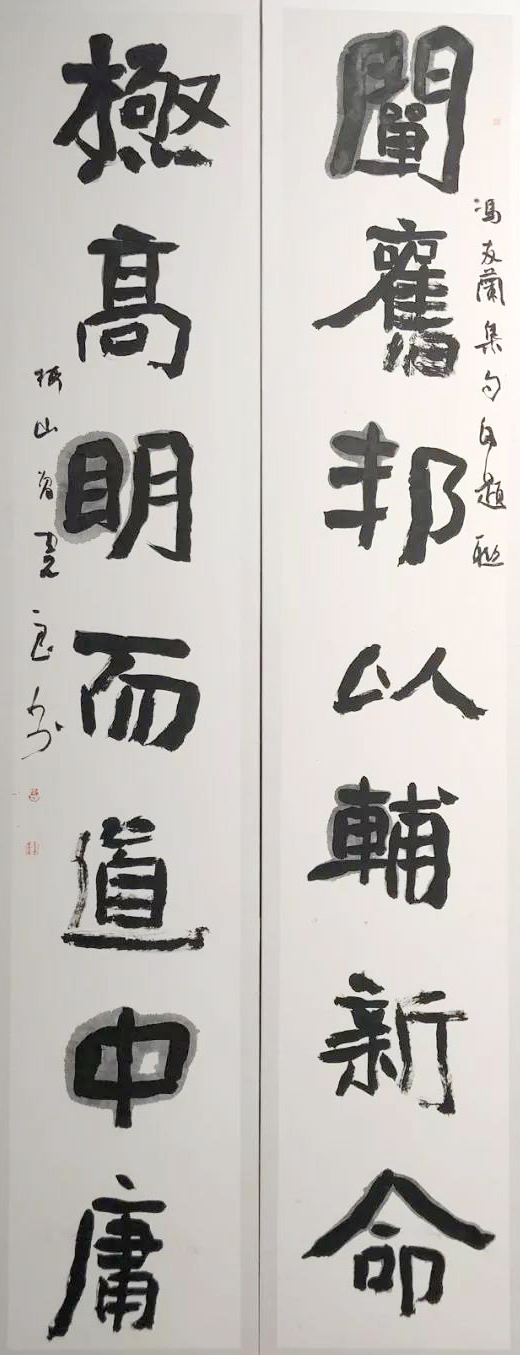 冯友蘭集句自題聯
闡舊邦以輔新命
極高明而道中庸
山